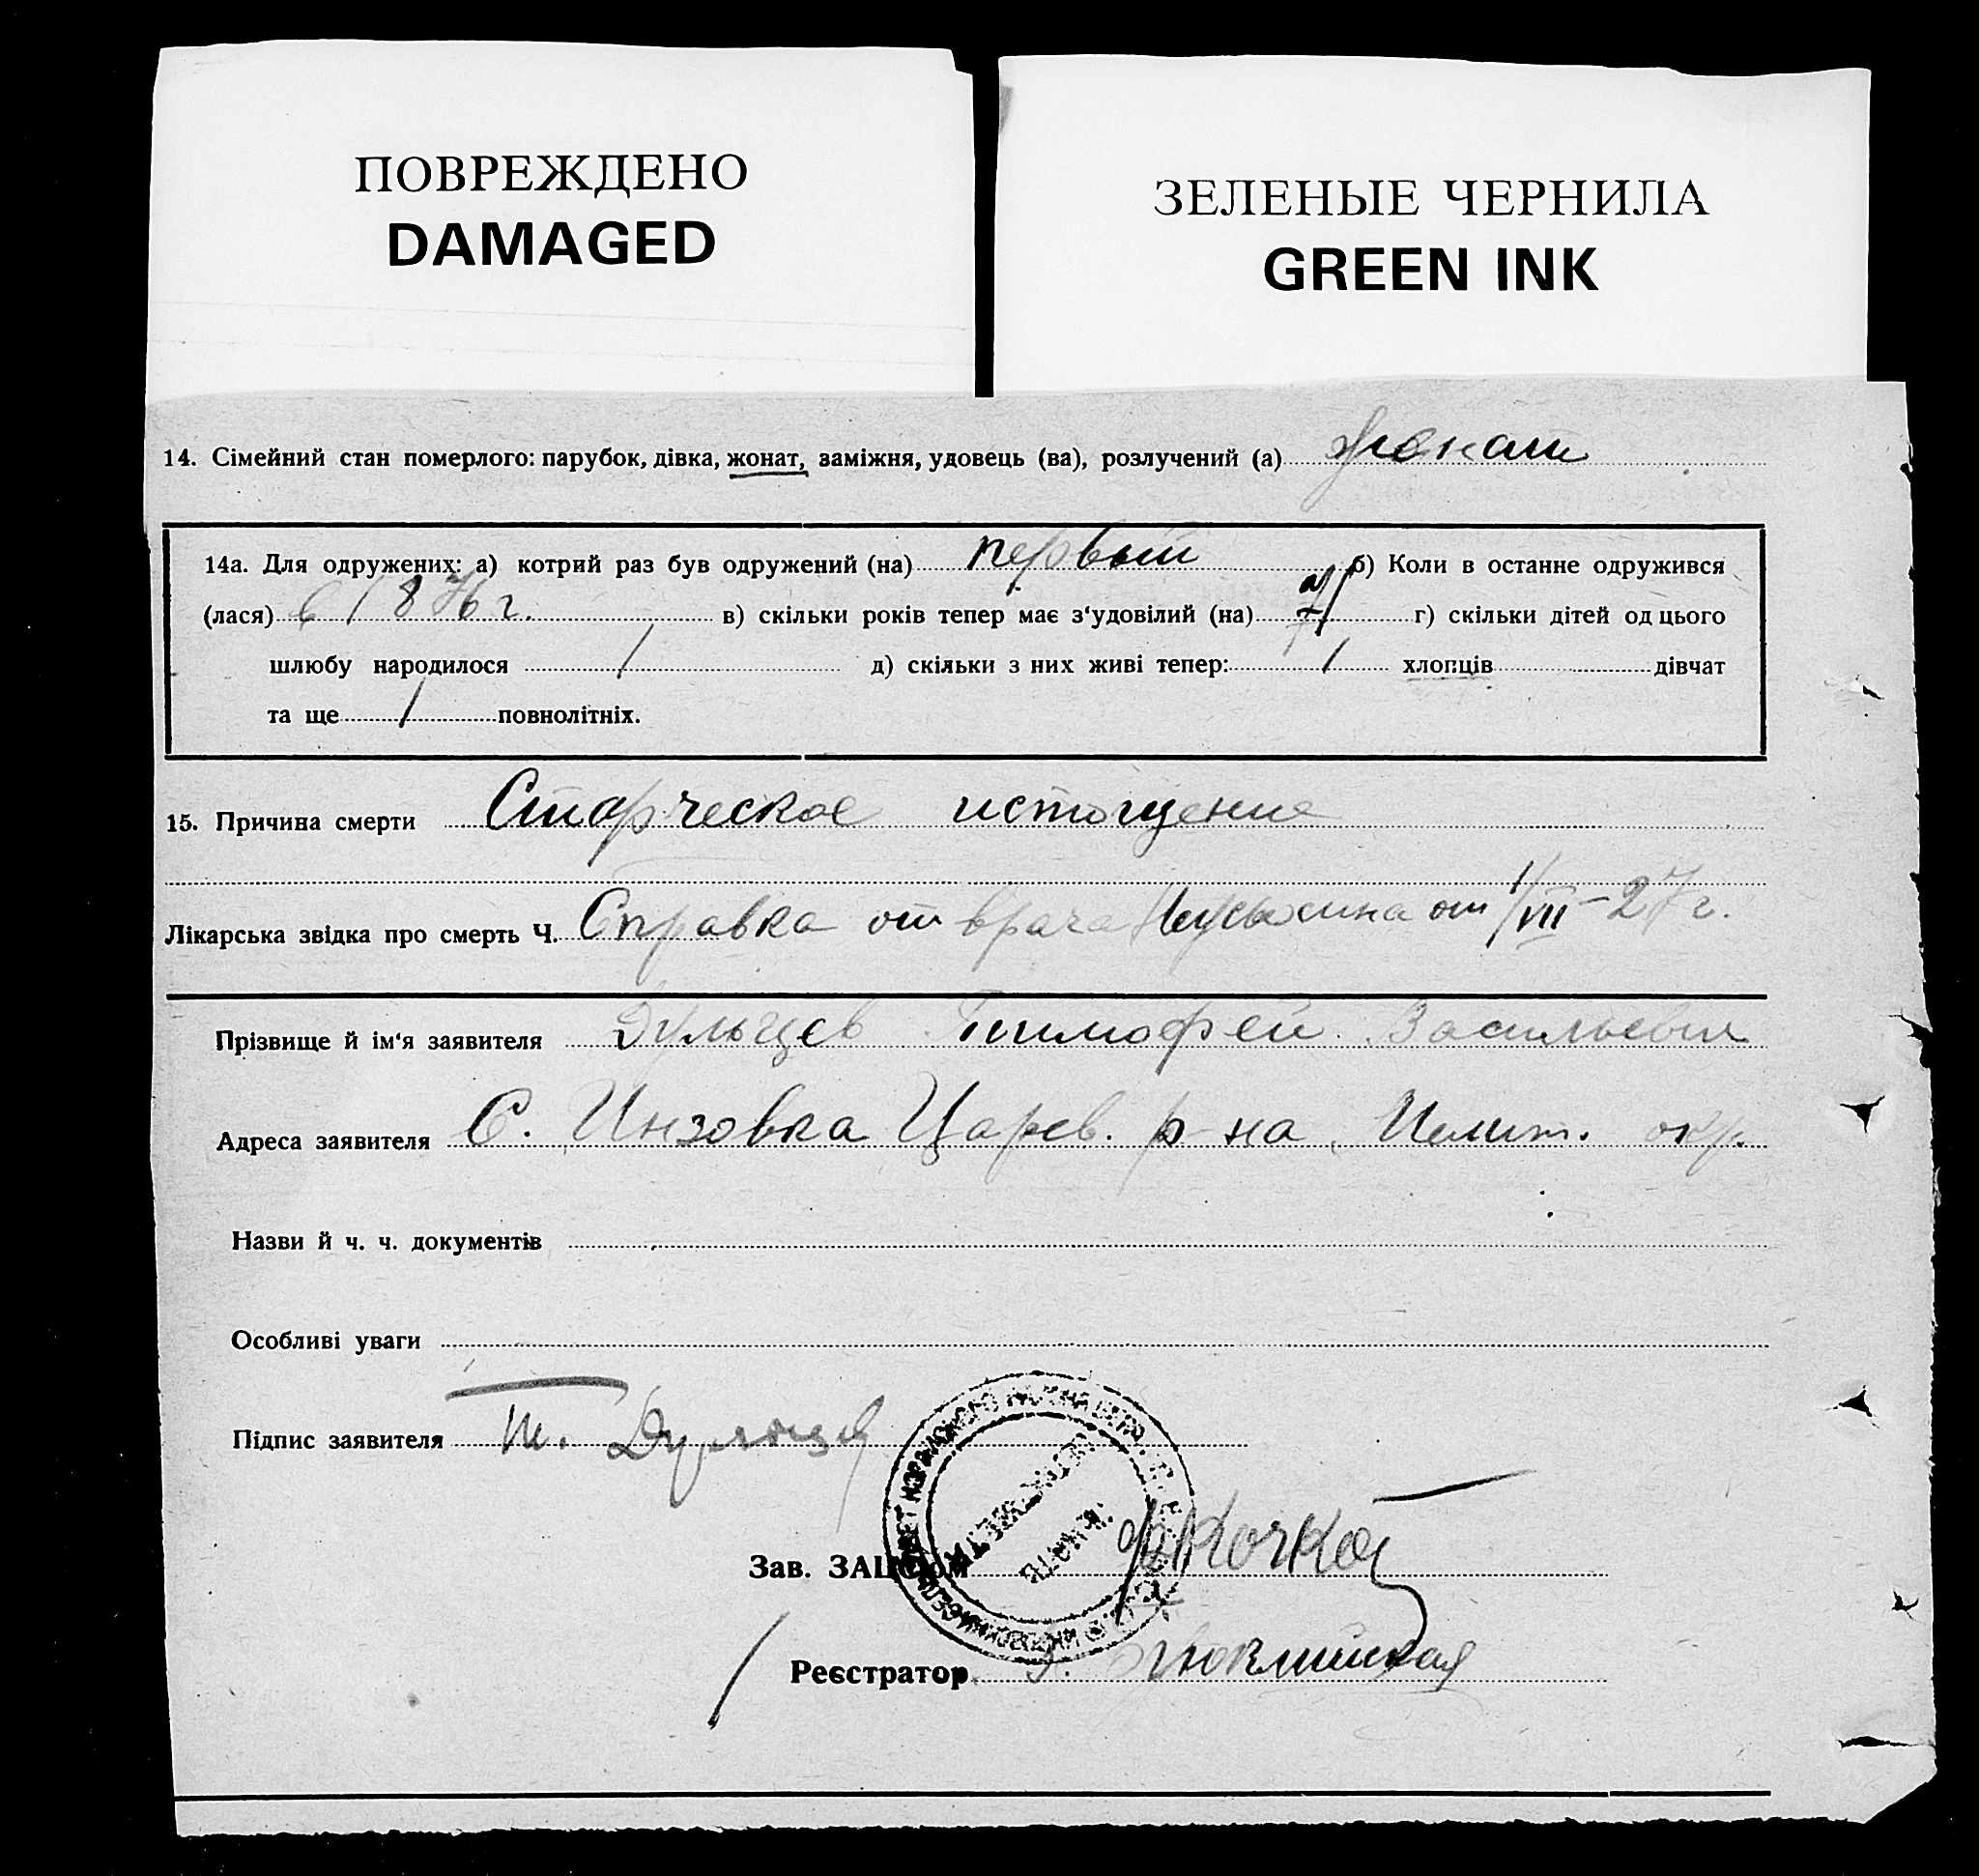 ПОВРЕЖДЕНО
DAMAGED
ЗЕЛЕНЫЕ ЧЕРНИЛА
GREEN INK
14. Сімейний стан померлого: парубок, дівка, жонат, заміжня, удовець (ва), розлучений (а) жонат
14а. Для одружених: а) котрий раз був одружений (на) первый б) Коли в останне одружився
(лася) в 1876 г. в) скільки років тепер має з'удовілий (на) 71 г) скільки дітей од цього
шлюбу народилося 1 д) скільки з них живі тепер: 1 хлопців дівчат
та ще 1 повнолітніх.
15. Причина смерти Старческое истощение
Лікарська звідка про смерть Ч. Справка от врача от 1/VII-27 г.
Прізвище й ім'я заявителя Дульцев Тимофей Васильевич
Адреса заявителя С. Инзовка Царев. р-на, Мелит. окр.
Назви й ч. ч. документів
Особливі уваги
Підпис заявителя Т. Дульцев
Зав. ЗАЦСом
Реєстратор